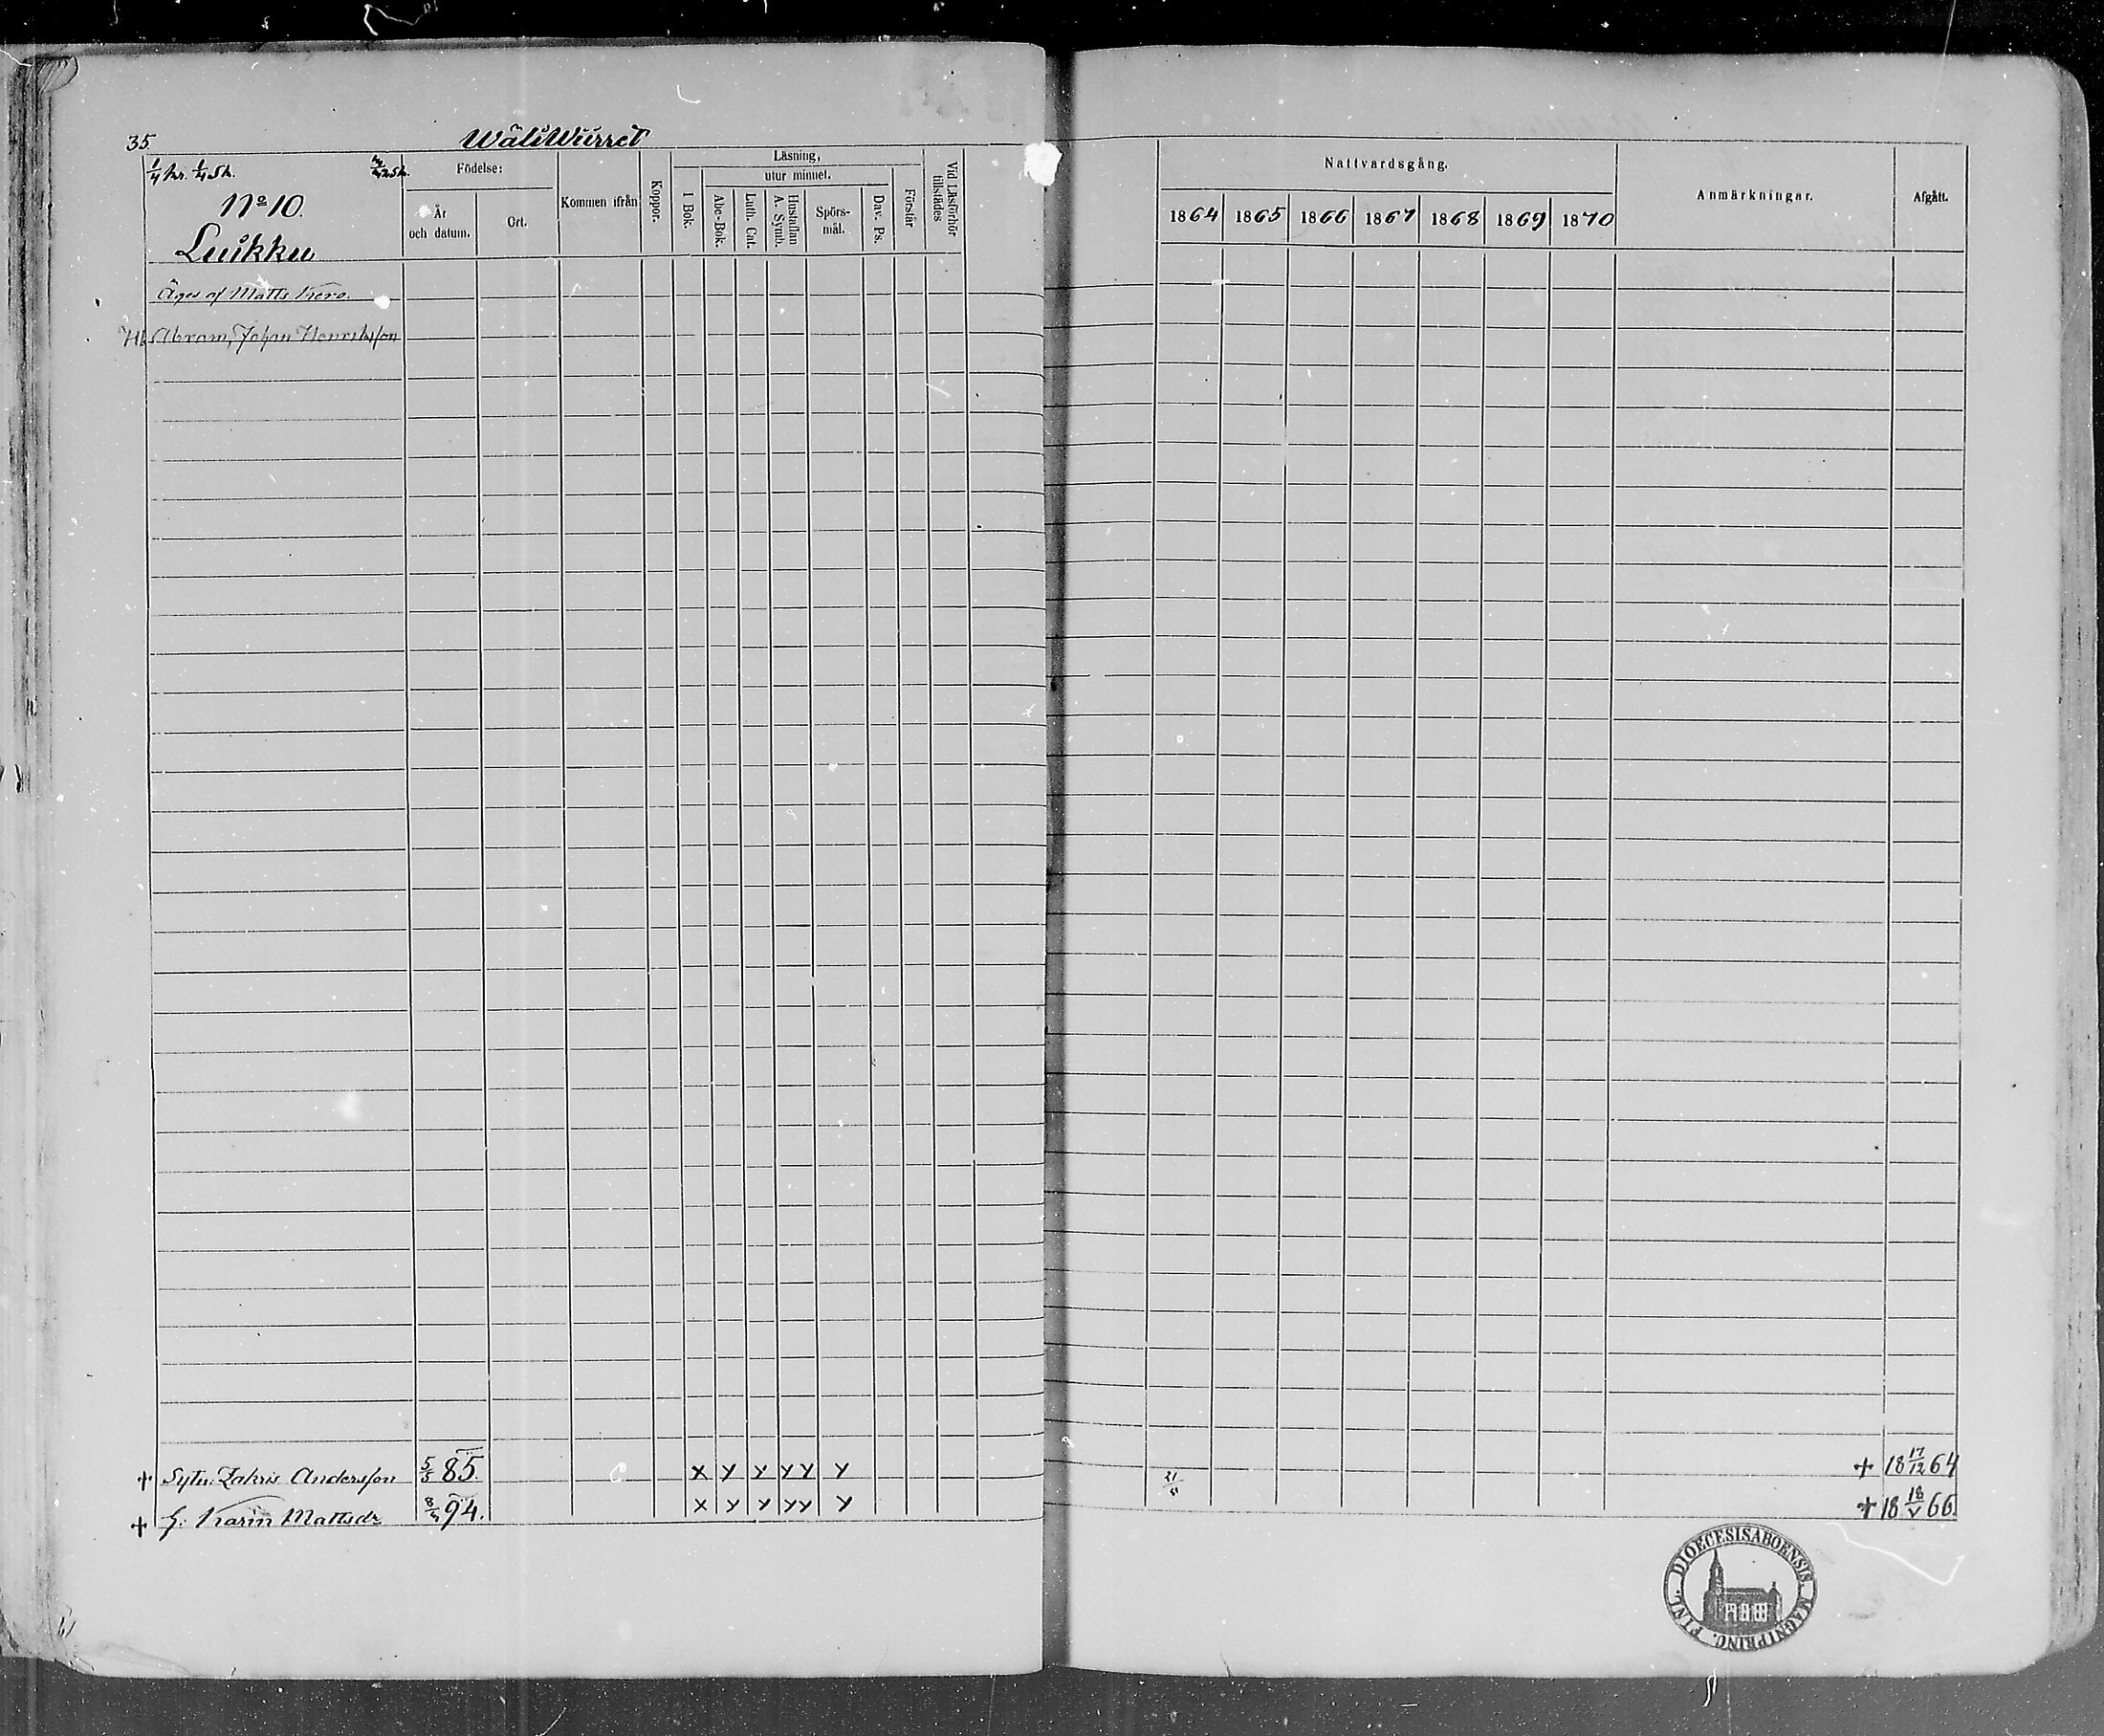 35. WäliWiirret
1/4 hr. 1/4 Sk.
No 10.
Luikku
Födelse:
År och datum.
Ort.
Kommen ifrån
Koppor.
Läsning,
utur minnet.
I Bok.
Abc-Bok.
Luth. Cat.
Hustaflan A. Symb.
Spörs-mål.
Dav. Ps.
Förstår
Vid Läsförhör tillstädes
Nattvardsgång.
1864 1865 1866 1867 1868 1869 1870
Anmärkningar.
Afgått.
Äges af Matts Kero.
Abram Johan Henriksson
+ Sytn. Zakris Andersson 5/5 85. x y y yy y + 18 17/12 64
+ h. Karin Mattsdr 94. x y y yy y + 18 18/V 66.
DIOECESIS ABOENSIS MAGNI PRINC. FINL.